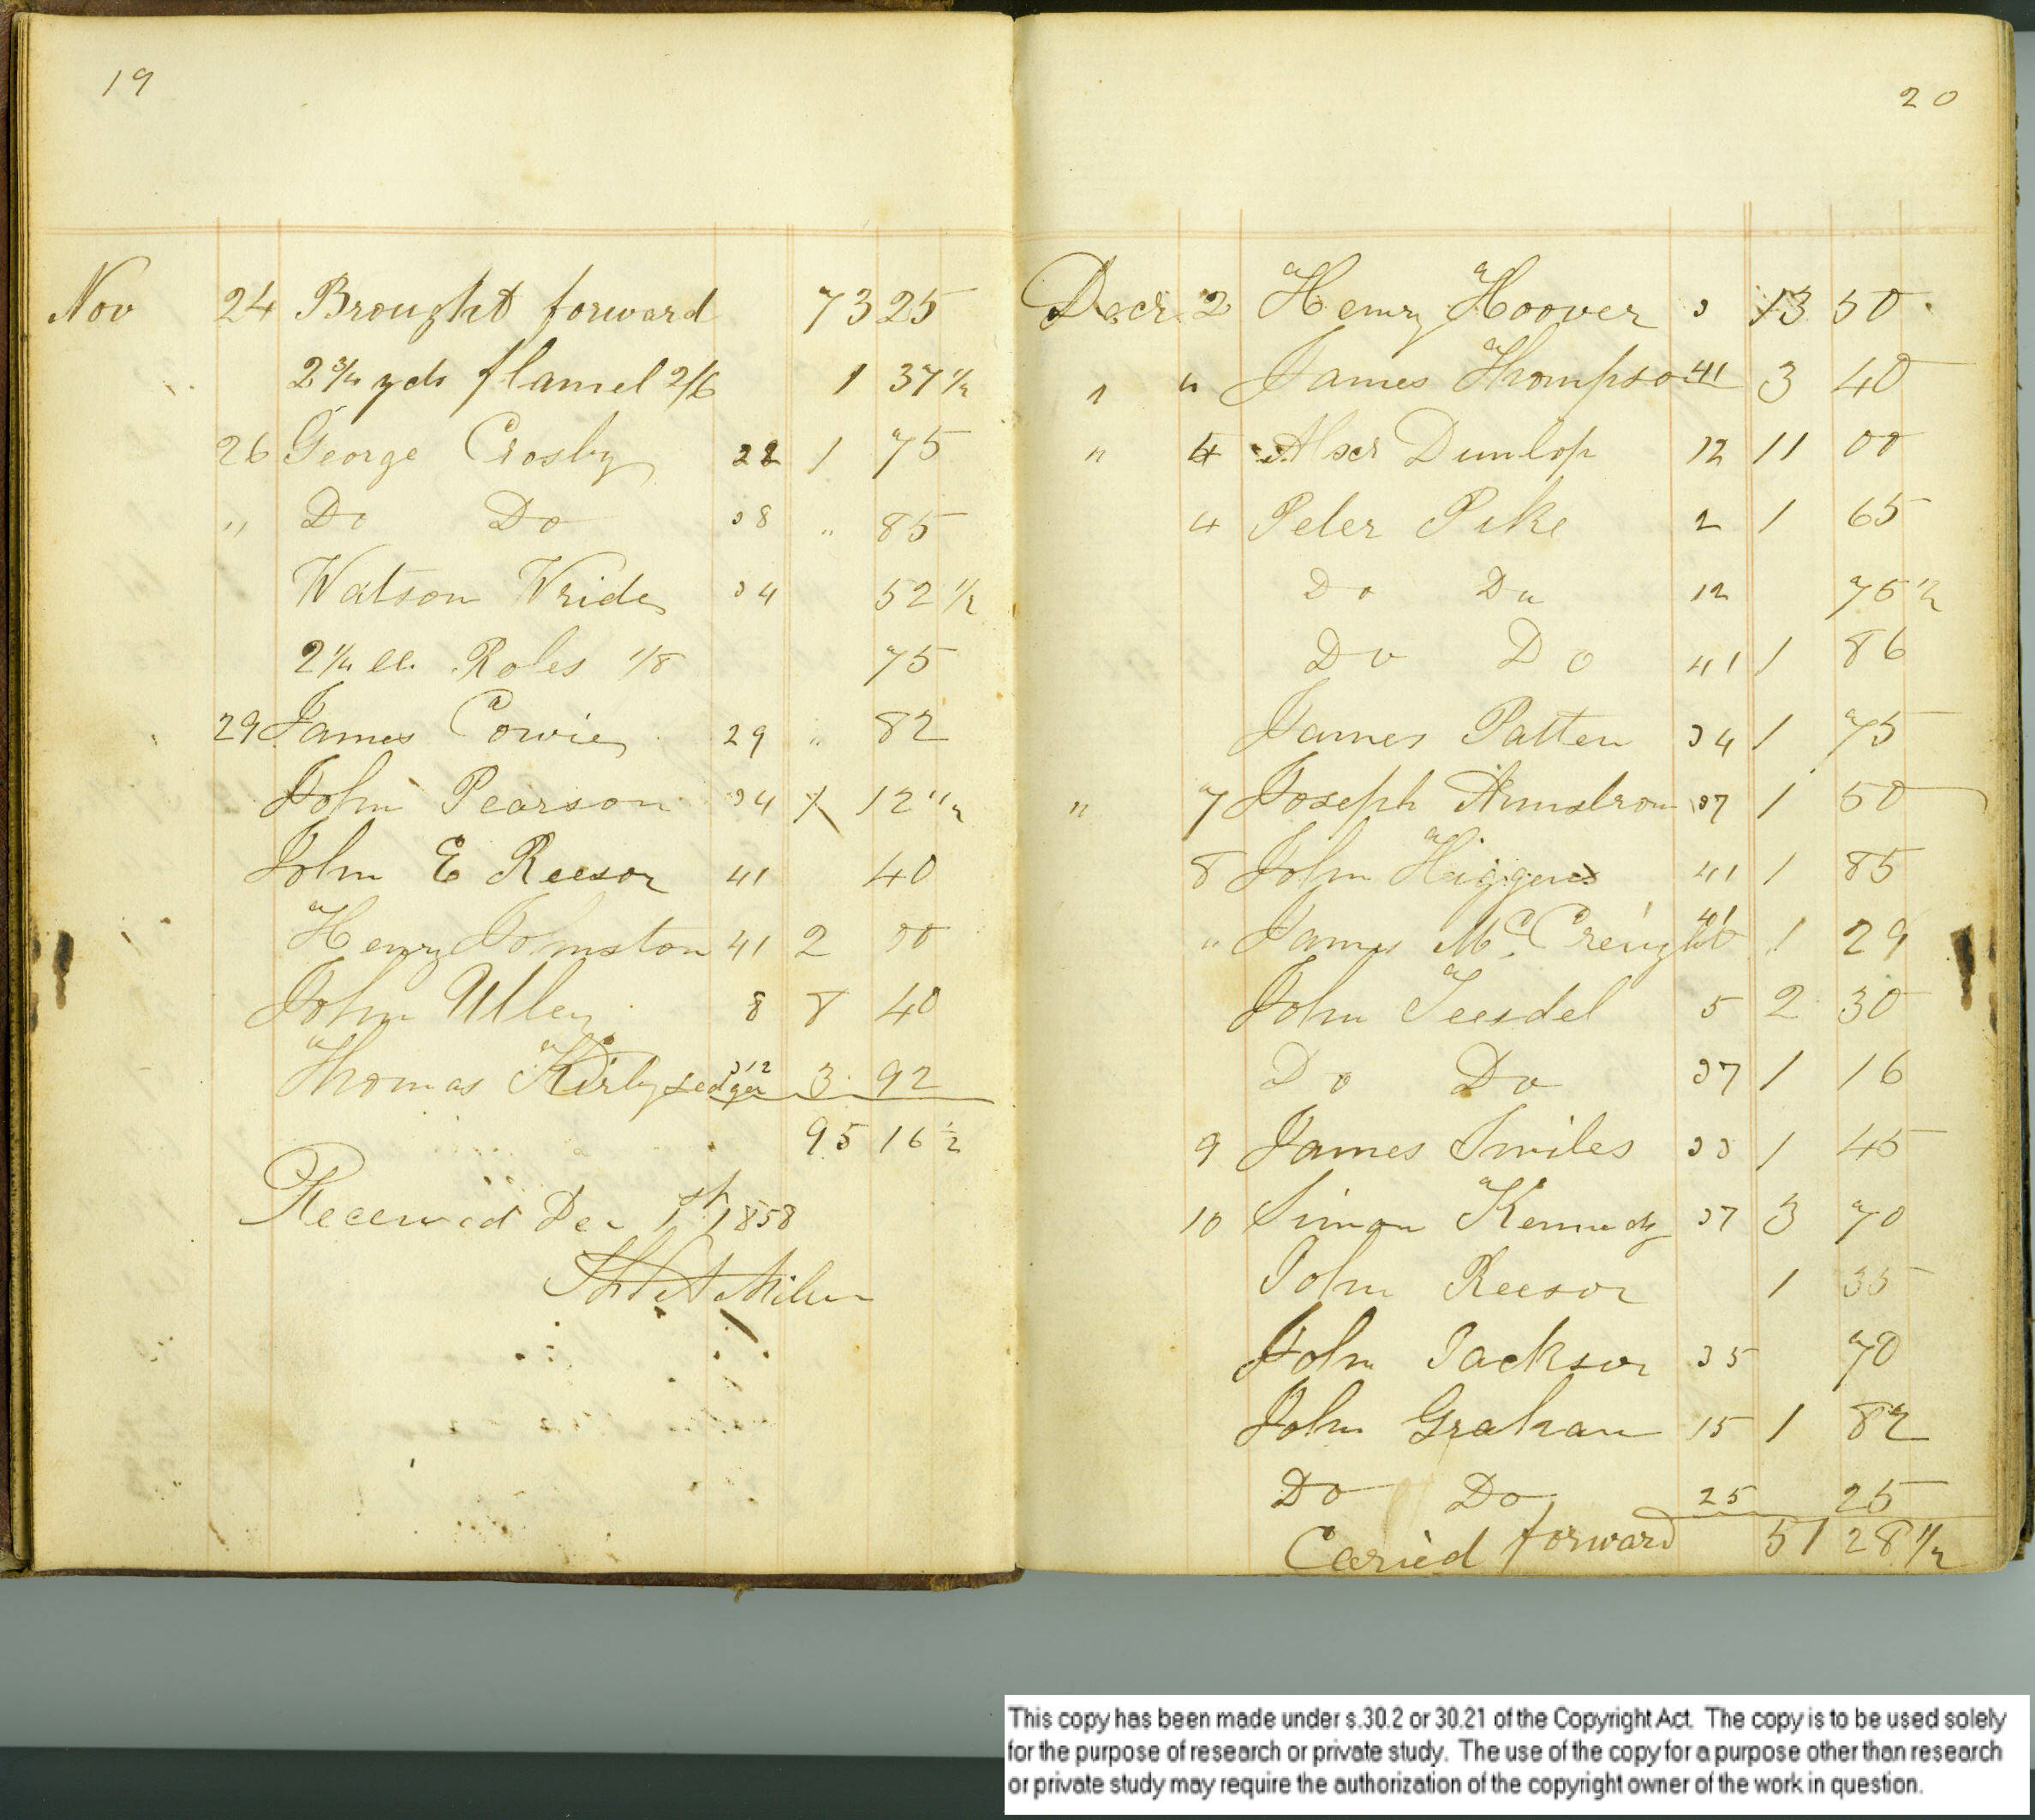 19
Nov 24 Brought forward 73 25
2 3/4 yds flannel 2/6 1 37 1/2
26 George Crosby 22 1 75
" Do Do 38 " 85
Watson Wride 34 52 1/2
2 1/4 Roles 1/8 75
29 James Cowie 29 " 82
John Pearson 34 1 12 1/2
John E Reesor 41 40
Henry Jonston 41 2 00
John Ulley 8 8 40
Thomas Kirby Ledger 312 3 92
95 16 1/2
Received Dec 1st 1858
Milne
20
Decr 2 Henry Hoover 3 13 50
" " James Thompson 41 3 40
" 4 Alxr Dunlop 12 11 00
4 Peter Pike 2 1 65
Do Do 12 75 1/2
Do Do 41 1 86
James Patten 34 1 75
" 7 Joseph Armstron 37 1 50
8 John Higgens 41 1 85
" James Mc Creight 41 1 29
John Teesdel 5 2 30
Do Do 37 1 16
9 James Smiles 33 1 45
10 Simon Kennedy 37 3 70
John Reesor 1 35
John Jackson 35 70
John Graham 15 1 82
Do Do 25 25
Caried forward 51 28 1/2
This copy has been made under s.30.2 or 30.21 of the Copyright Act. The copy is to be used solely
for the purpose of research or private study. The use of the copy for a purpose other than research
or private study may require the authorization of the copyright owner of the work in question.